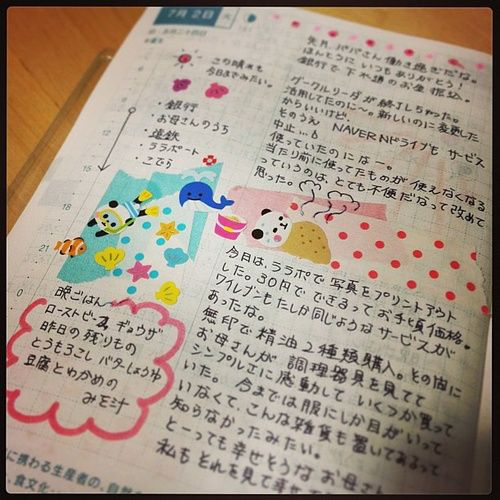 7月2日 火
この晴れも
今日までみたい。
・銀行
・お母さんのうち
・遠鉄
・ララポート
・こでら
9
12
15
18
21
0
先月、パパさん働き過ぎだな。
ほんとうに いつもありがとう!
銀行で 下水道のお金 振込。
グーグルリーダが終了しちゃった。
活用してたのに〜。新しいのに変更した
からいいけど、
そのうえ NAVERNドライブも サービス
中止...。
使っていたのになー。
当たり前に使ってたものが 使えなくなる
っていうのは、とても不便だなって改めて
思った。
今日は、ララポで 写真をプリントアウト
した。30円で できるってお手頃価格。
ウイレブンもたしか同じようなサービスが
あったな。
無印で精油2種類購入。その他に
お母さんが 調理器具を見てて
シンプルエに感動して いくつか買って
いた。 今までは服にしか目がいって
いなくて、こんな雑貨も置いてあるって
知らなかったみたい。
とーっても幸せそうな お母さん
私もそれを見て幸せ
晩ごはん
ローストビーフ ギョウザ
昨日の残りもの
とうもろこし バターしょうゆ
豆腐とわかめの
みそ汁
に携わる生産者の、自然
、食文化